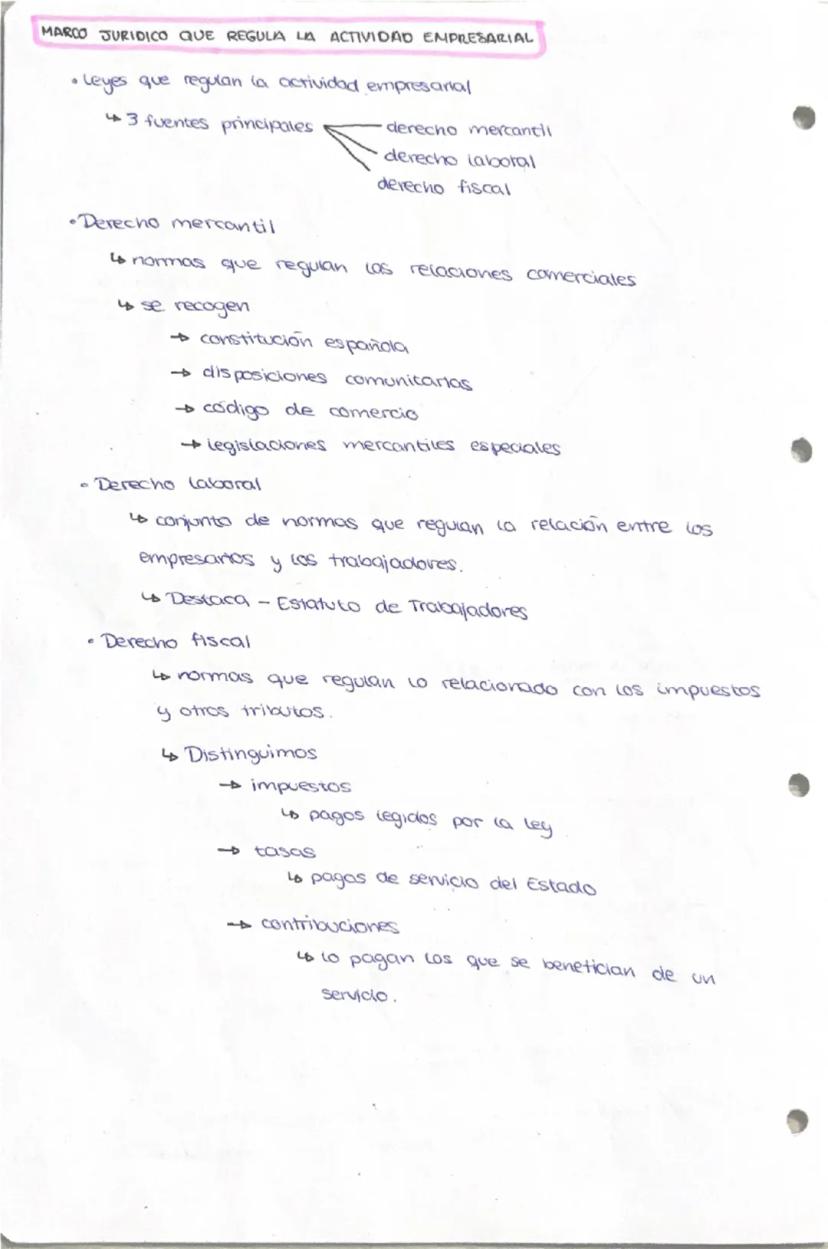 MARCO JURIDICO QUE REGULA LA ACTIVIDAD EMPRESARIAL
• Leyes que regulan la actividad empresarial
↳ 3 fuentes principales derecho mercantil
derecho laboral
derecho fiscal
• Derecho mercantil
↳ normas que regulan las relaciones comerciales
↳ se recogen
→ constitución española
→ disposiciones comunitarias
→ código de comercio
→ legislaciones mercantiles especiales
• Derecho laboral
↳ conjunto de normas que regulan la relación entre los
empresarios y los trabajadores.
↳ Destaca - Estatuto de Trabajadores
• Derecho fiscal
↳ normas que regulan lo relacionado con los impuestos
y otros tributos.
↳ Distinguimos
→ impuestos
↳ pagos legidos por la ley
→ tasas
↳ pagos de servicio del Estado
→ contribuciones
↳ lo pagan los que se benefician de un
servicio.